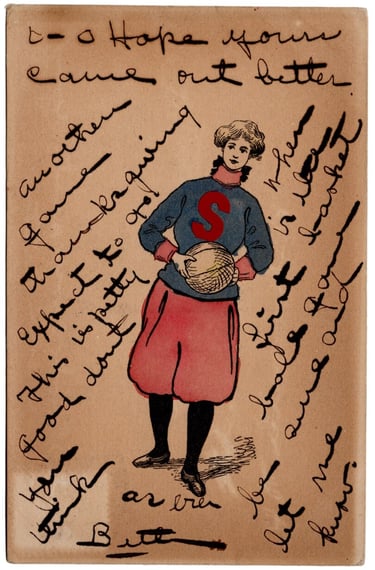 0-0 Hope yours
came out better.
another
game
thanksgiving
Expect to go.
This is pretty
good dont
you
think
S
when
is the
first basket
ball game
be sure and
let me
know.
as ever
Beth